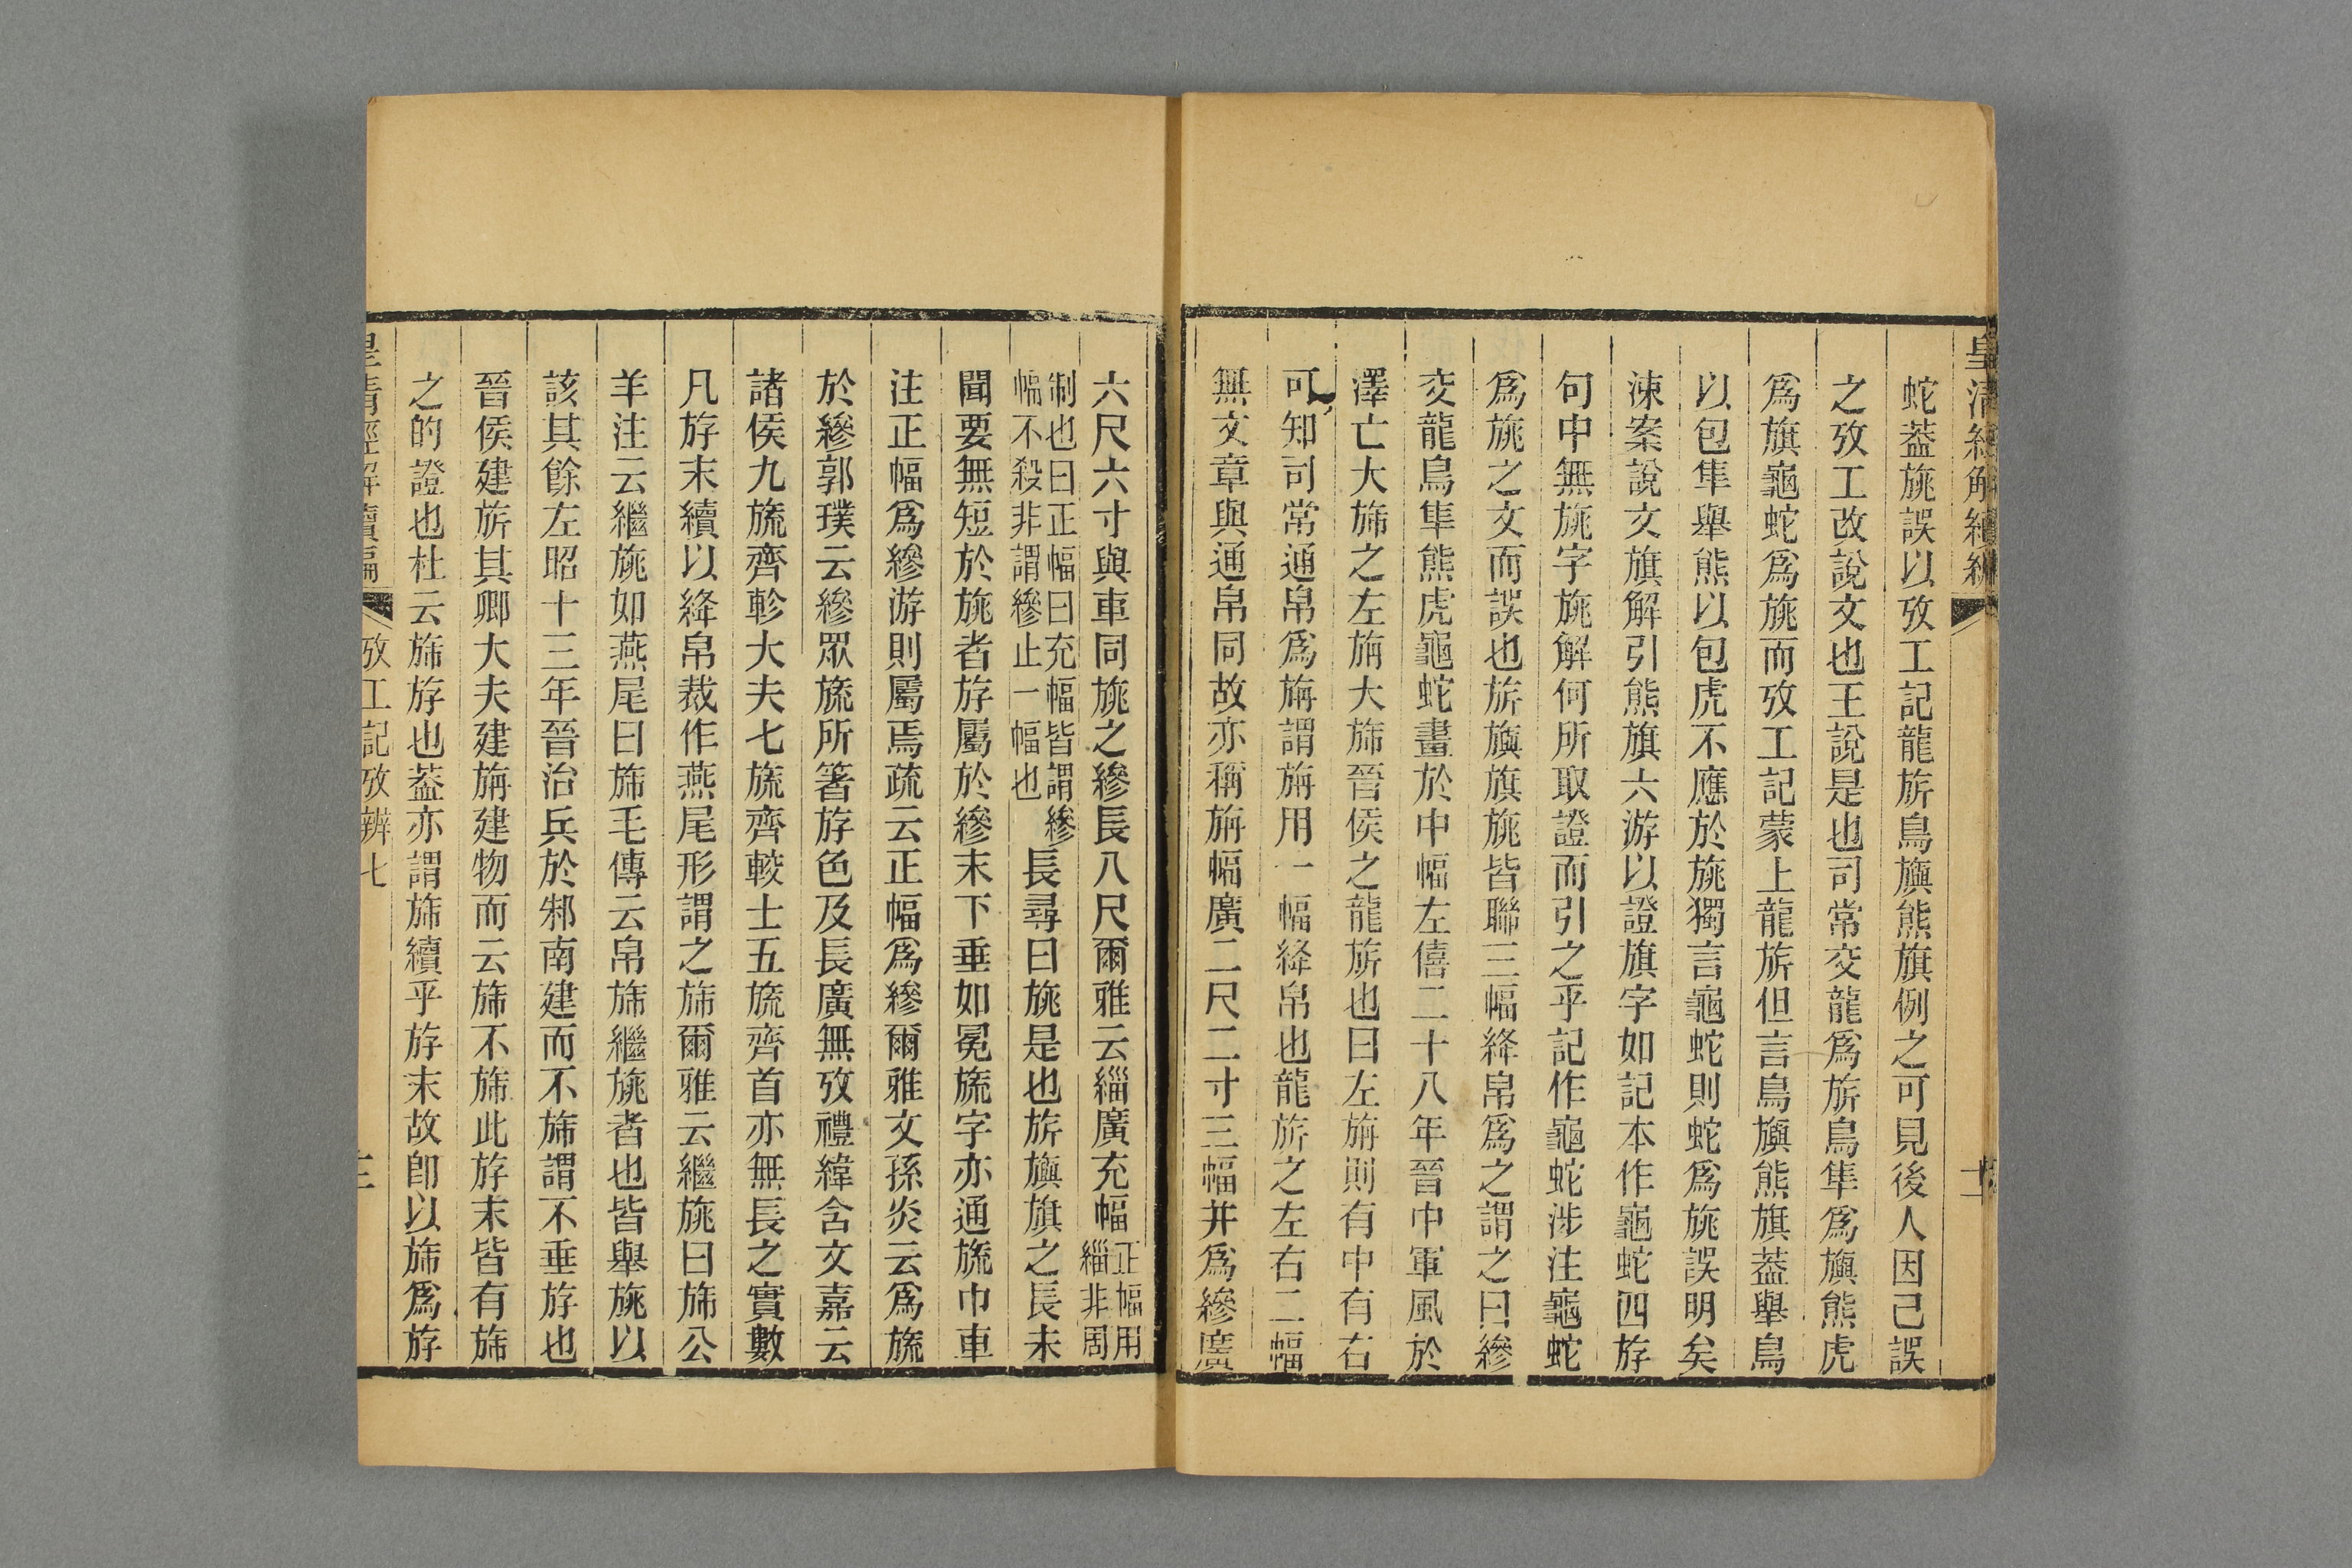 皇清經解續編
蛇葢旐誤以攷工記龍旂鳥旟熊旗例之可見後人因己誤
之攷工改說文也王說是也司常交龍爲旂鳥隼爲旟熊虎
爲旗龜蛇爲旐而攷工記蒙上龍旂但言鳥旟熊旗葢舉鳥
以包隼舉熊以包虎不應於旐獨言龜蛇則蛇爲旐誤明矣
涑案說文旗解引熊旗六游以證旗字如記本作龜蛇四斿
句中無旐字旐解何所取證而引之乎記作龜蛇涉注龜蛇
爲旐之文而誤也旂旟旗旐皆聯三幅絳帛爲之謂之曰縿
交龍鳥隼熊虎龜蛇畫於中幅左僖二十八年晉中軍風於
澤亡大旆之左旃大旆晉侯之龍旂也曰左旃則有中有右
可知司常通帛爲旃謂旃用一幅絳帛也龍旂之左右二幅
無文章與通帛同故亦稱旃幅廣二尺二寸三幅并爲縿廣
六尺六寸與車同旐之縿長八尺爾雅云緇廣充幅正幅用緇非周
制也曰正幅曰充幅皆謂縿幅不殺非謂縿止一幅也長尋曰旐是也旂旟旗之長未
聞要無短於旐者斿屬於縿末下垂如冕旒字亦通旒巾車
注正幅爲縿游則屬焉疏云正幅爲縿爾雅文孫炎云爲旒
於縿郭璞云縿眾旒所箸斿色及長廣無攷禮緯含文嘉云
諸侯九旒齊軫大夫七旒齊較士五旒齊首亦無長之實數
凡斿末續以絳帛裁作燕尾形謂之旆爾雅云繼旐曰旆公
羊注云繼旐如燕尾曰旆毛傳云帛旆繼旐者也皆舉旐以
該其餘左昭十三年晉治兵於邾南建而不旆謂不垂斿也
晉侯建旂其卿大夫建旃建物而云旆不旆此斿末皆有旆
之的證也杜云旆斿也葢亦謂旆續乎斿末故卽以旆爲斿
皇清經解續編 攷工記攷辨七